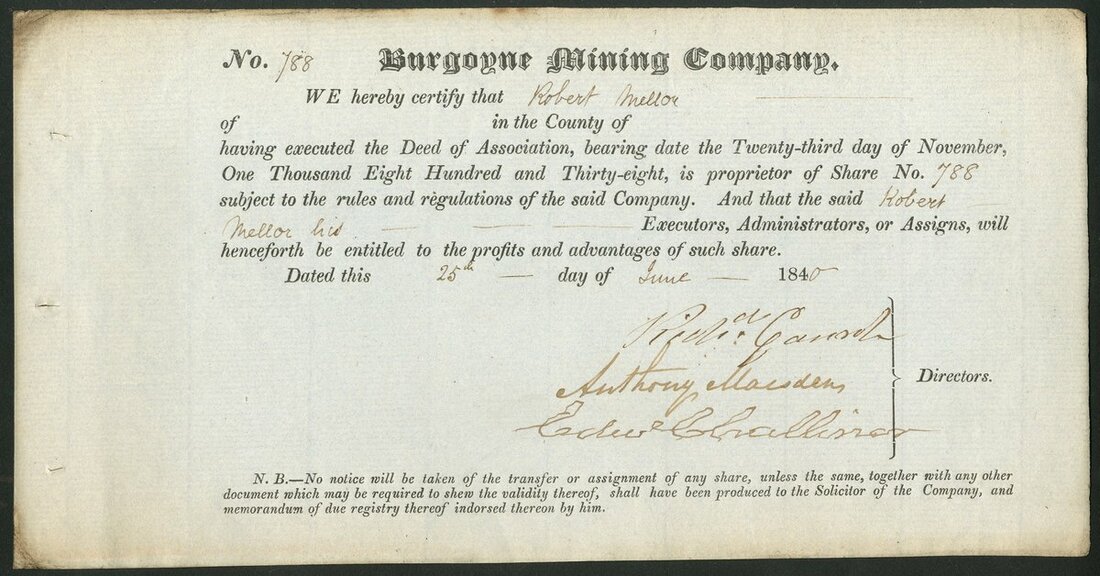 No. 788 Burgoyne Mining Company.
WE hereby certify that Robert Mellor
of in the County of
having executed the Deed of Association, bearing date the Twenty-third day of November,
One Thousand Eight Hundred and Thirty-eight, is proprietor of Share No. 788
subject to the rules and regulations of the said Company. And that the said Robert
Mellor his Executors, Administrators, or Assigns, will
henceforth be entitled to the profits and advantages of such share.
Dated this 25th day of June 1840
Richd.
Anthony Marsden
Edwd Challinor
Directors.
N. B.—No notice will be taken of the transfer or assignment of any share, unless the same, together with any other
document which may be required to shew the validity thereof, shall have been produced to the Solicitor of the Company, and
memorandum of due registry thereof indorsed thereon by him.